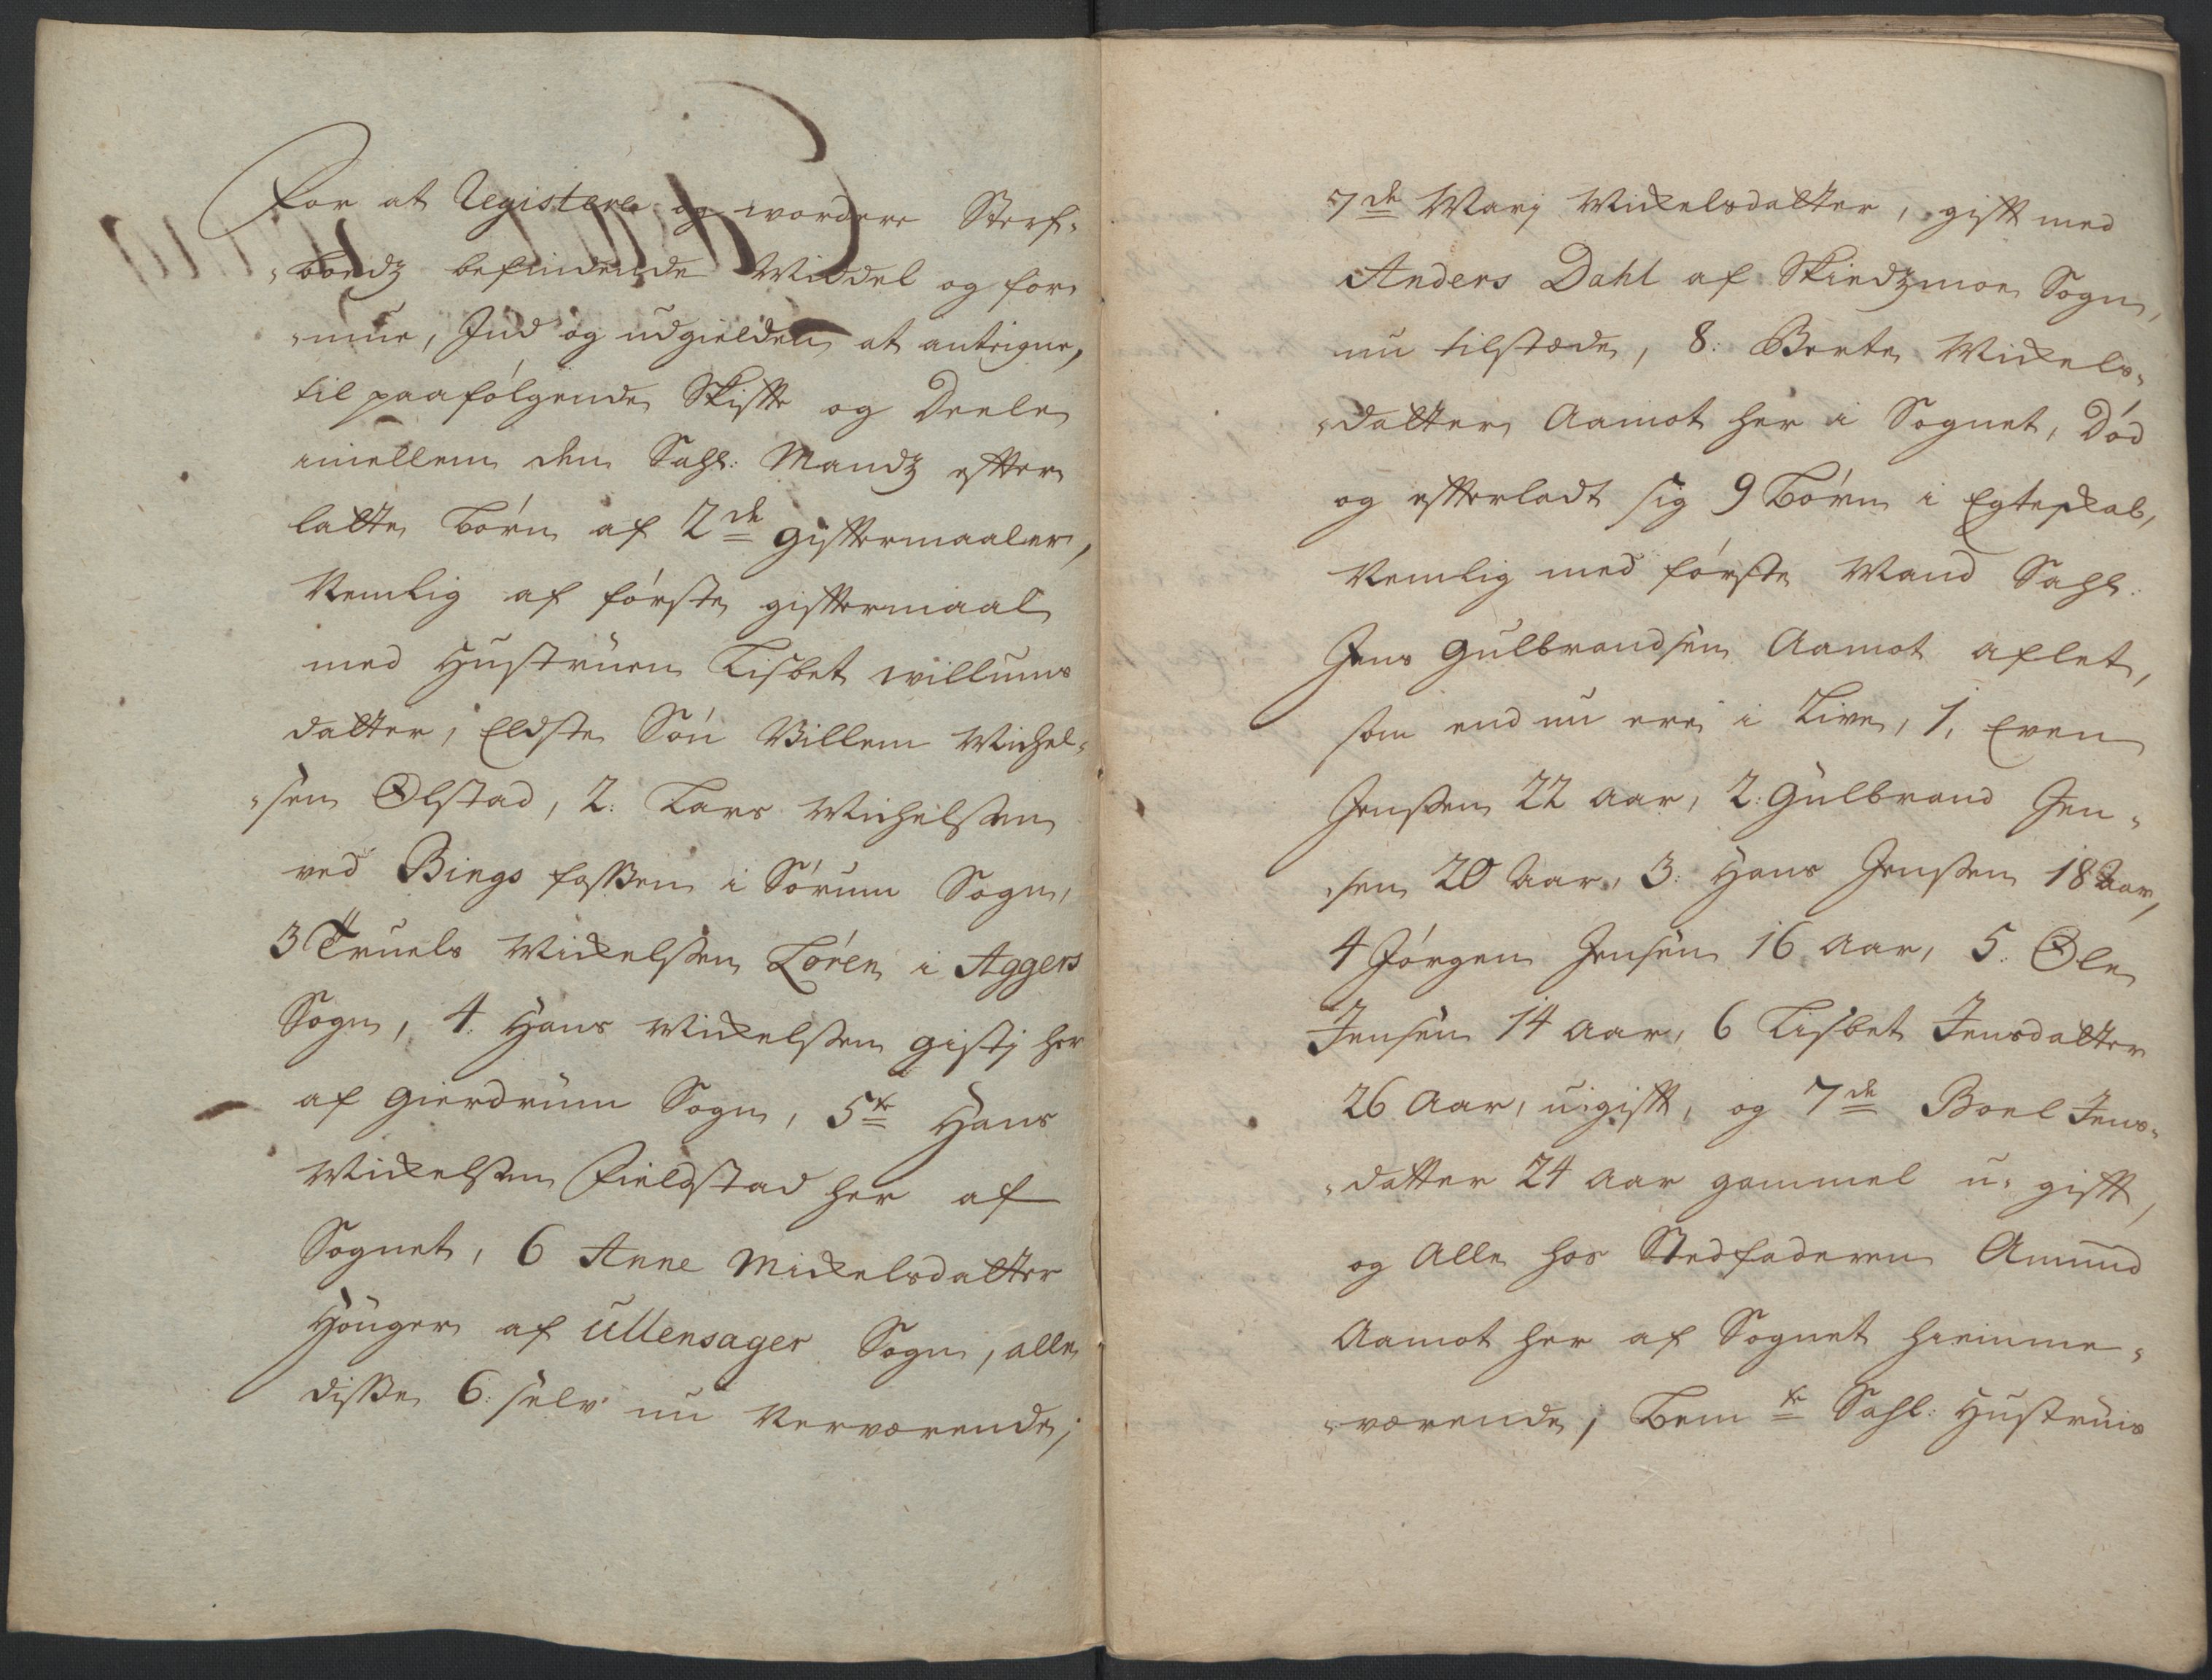 For at Registere og wordere Sterf-
-boedz befindende Middel og for-
-mue, Ind og udgielden at anteigne,
til paafølgende Skifte og Deele
imellem den Sahl: Mandz efter
latte Børn af 2de giftermaaler,
Nemlig af første giftermaal
med Hustruen Lisbet willums
datter, Eldste Søn Villem Michel-
-sen Ølstad, 2: Lars Michelsen
ved Bings fossen i Sørum Sogn,
3 Truels Mickelsen Løren i Aggers
Sogn, 4. Hans Mickelsen gistj her
af Gierdrum Sogn, 5te Hans
Mickelsen Fieldstad her af
Sognet, 6 Anne Mickelsdatter
Høuger af Ullensager Sogn, alle
disse 6: selv nu Nerværende;
7de Marj Mickelsdatter, gift med
Anders Dahl af Skiedzmoe Sogn,
nu tilstæde, 8: Berte Mickels-
-datter Aamot her i Sognet, Død
og efterladt sig 9 Børn i Egteskab,
Nemlig med første Mand Sahl:
Jens Gulbrandsen Aamot aflet,
som end nu ere i Live, 1, Even
Jensen 22 Aar, 2: Gulbrand Jen-
-sen 20 Aar, 3: Hans Jensen 18 Aar,
4 Jørgen Jensen 16 Aar, 5. Ole
Jensen 14 Aar, 6 Lisbet Jensdatter
26 Aar, u-gift, og 7de Boel Jens-
-datter 24 Aar gammel u-gift,
og Alle hos Stedfaderen Amund
Aamot her af Sognet hiemme-
-værende, Bemte Sahl: Hustruis